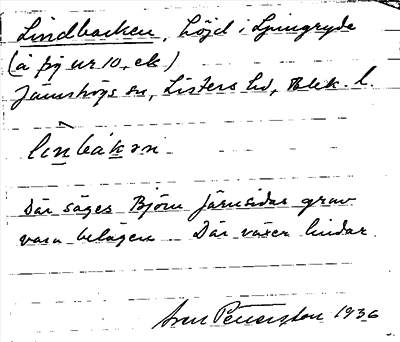 Lindbacken, höjd i Ljungryda
(å fg nr 10, ek.)
Jämshögs sn, Listers hd, Blek. l.
linbakan
Där säges Björn Järnsidas grav
vara belägen Där växer lindar.
Pettersson 1936